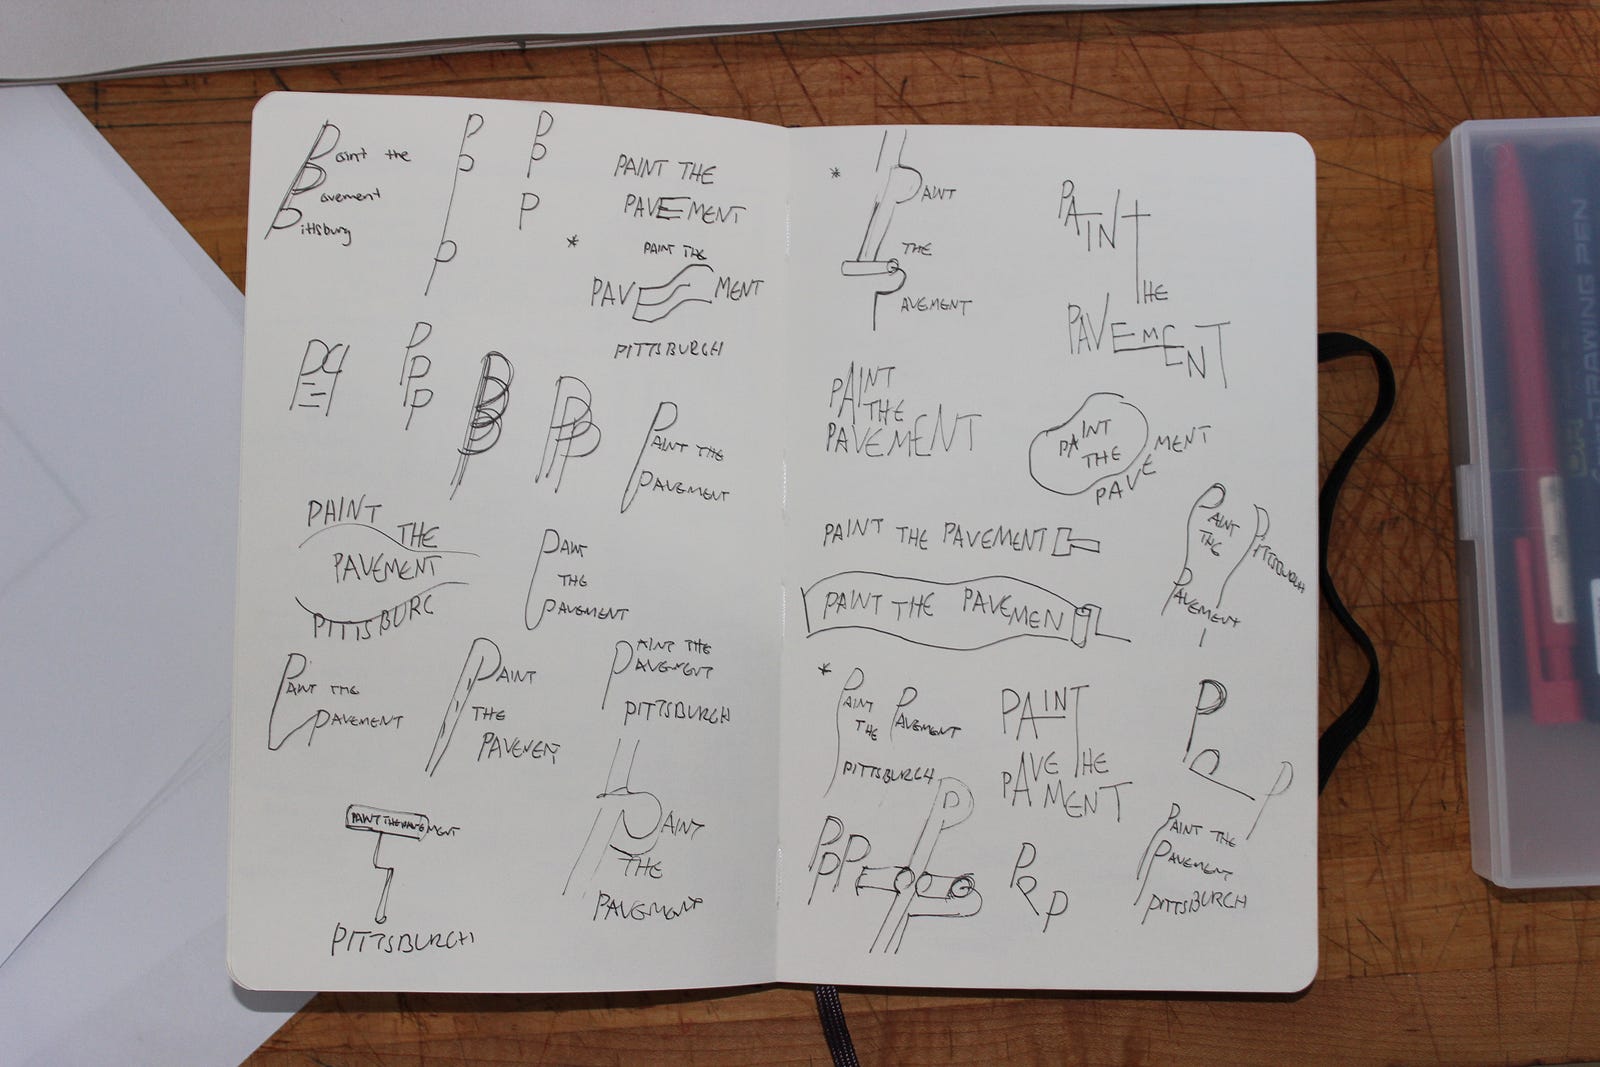 Paint the
Pavement
Pittsburg
P
P
P
P
P
P
PAINT THE
PAVEMENT
*
PAINT THE
PAVEMENT
PITTSBURGH
P
P
P
PAINT THE
PAVEMENT
PAINT
THE
PAVEMENT
PITTSBURG
PAINT
THE
PAVEMENT
PAINT THE
PAVEMENT
PAINT
THE
PAVEMENT
PAINT THE
PAVEMENT
PITTSBURGH
PAINT THE PAVEMENT
PITTSBURGH
PAINT
THE
PAVEMENT
*
PAINT
THE
PAVEMENT
PAINT
THE
PAVEMENT
PAINT
THE
PAVEMENT
PAINT
THE
PAVEMENT
PAINT THE PAVEMENT
PAINT THE PAVEMEN
PAINT
THE
PAVEMENT
PITTSBURGH
*
PAINT
THE
PAVEMENT
PITTSBURGH
PAINT
THE
PAVEMENT
P
P
P
PPP
P
P
P
P
PAINT THE
PAVEMENT
PITTSBURGH
DRAWING PEN